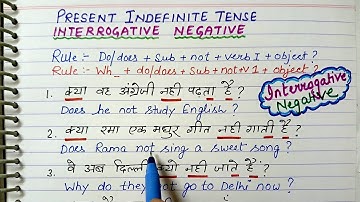 PRESENT INDEFINITE TENSE
INTERROGATIVE NEGATIVE
Rule:- Do/does + Sub + not + verb I + object ?
Rule:- Wh_ + do/does + Sub + not + V1 + object ?
1. क्या वह अंग्रेजी नहीं पढ़ता है ?
Does he not study English ?
Interrogative
Negative
2. क्या रमा एक मधुर गीत नहीं गाती है ?
Does Rama not sing a sweet song ?
3. वे अब दिल्ली क्यों नहीं जाते हैं ?
Why do they not go to Delhi now ?